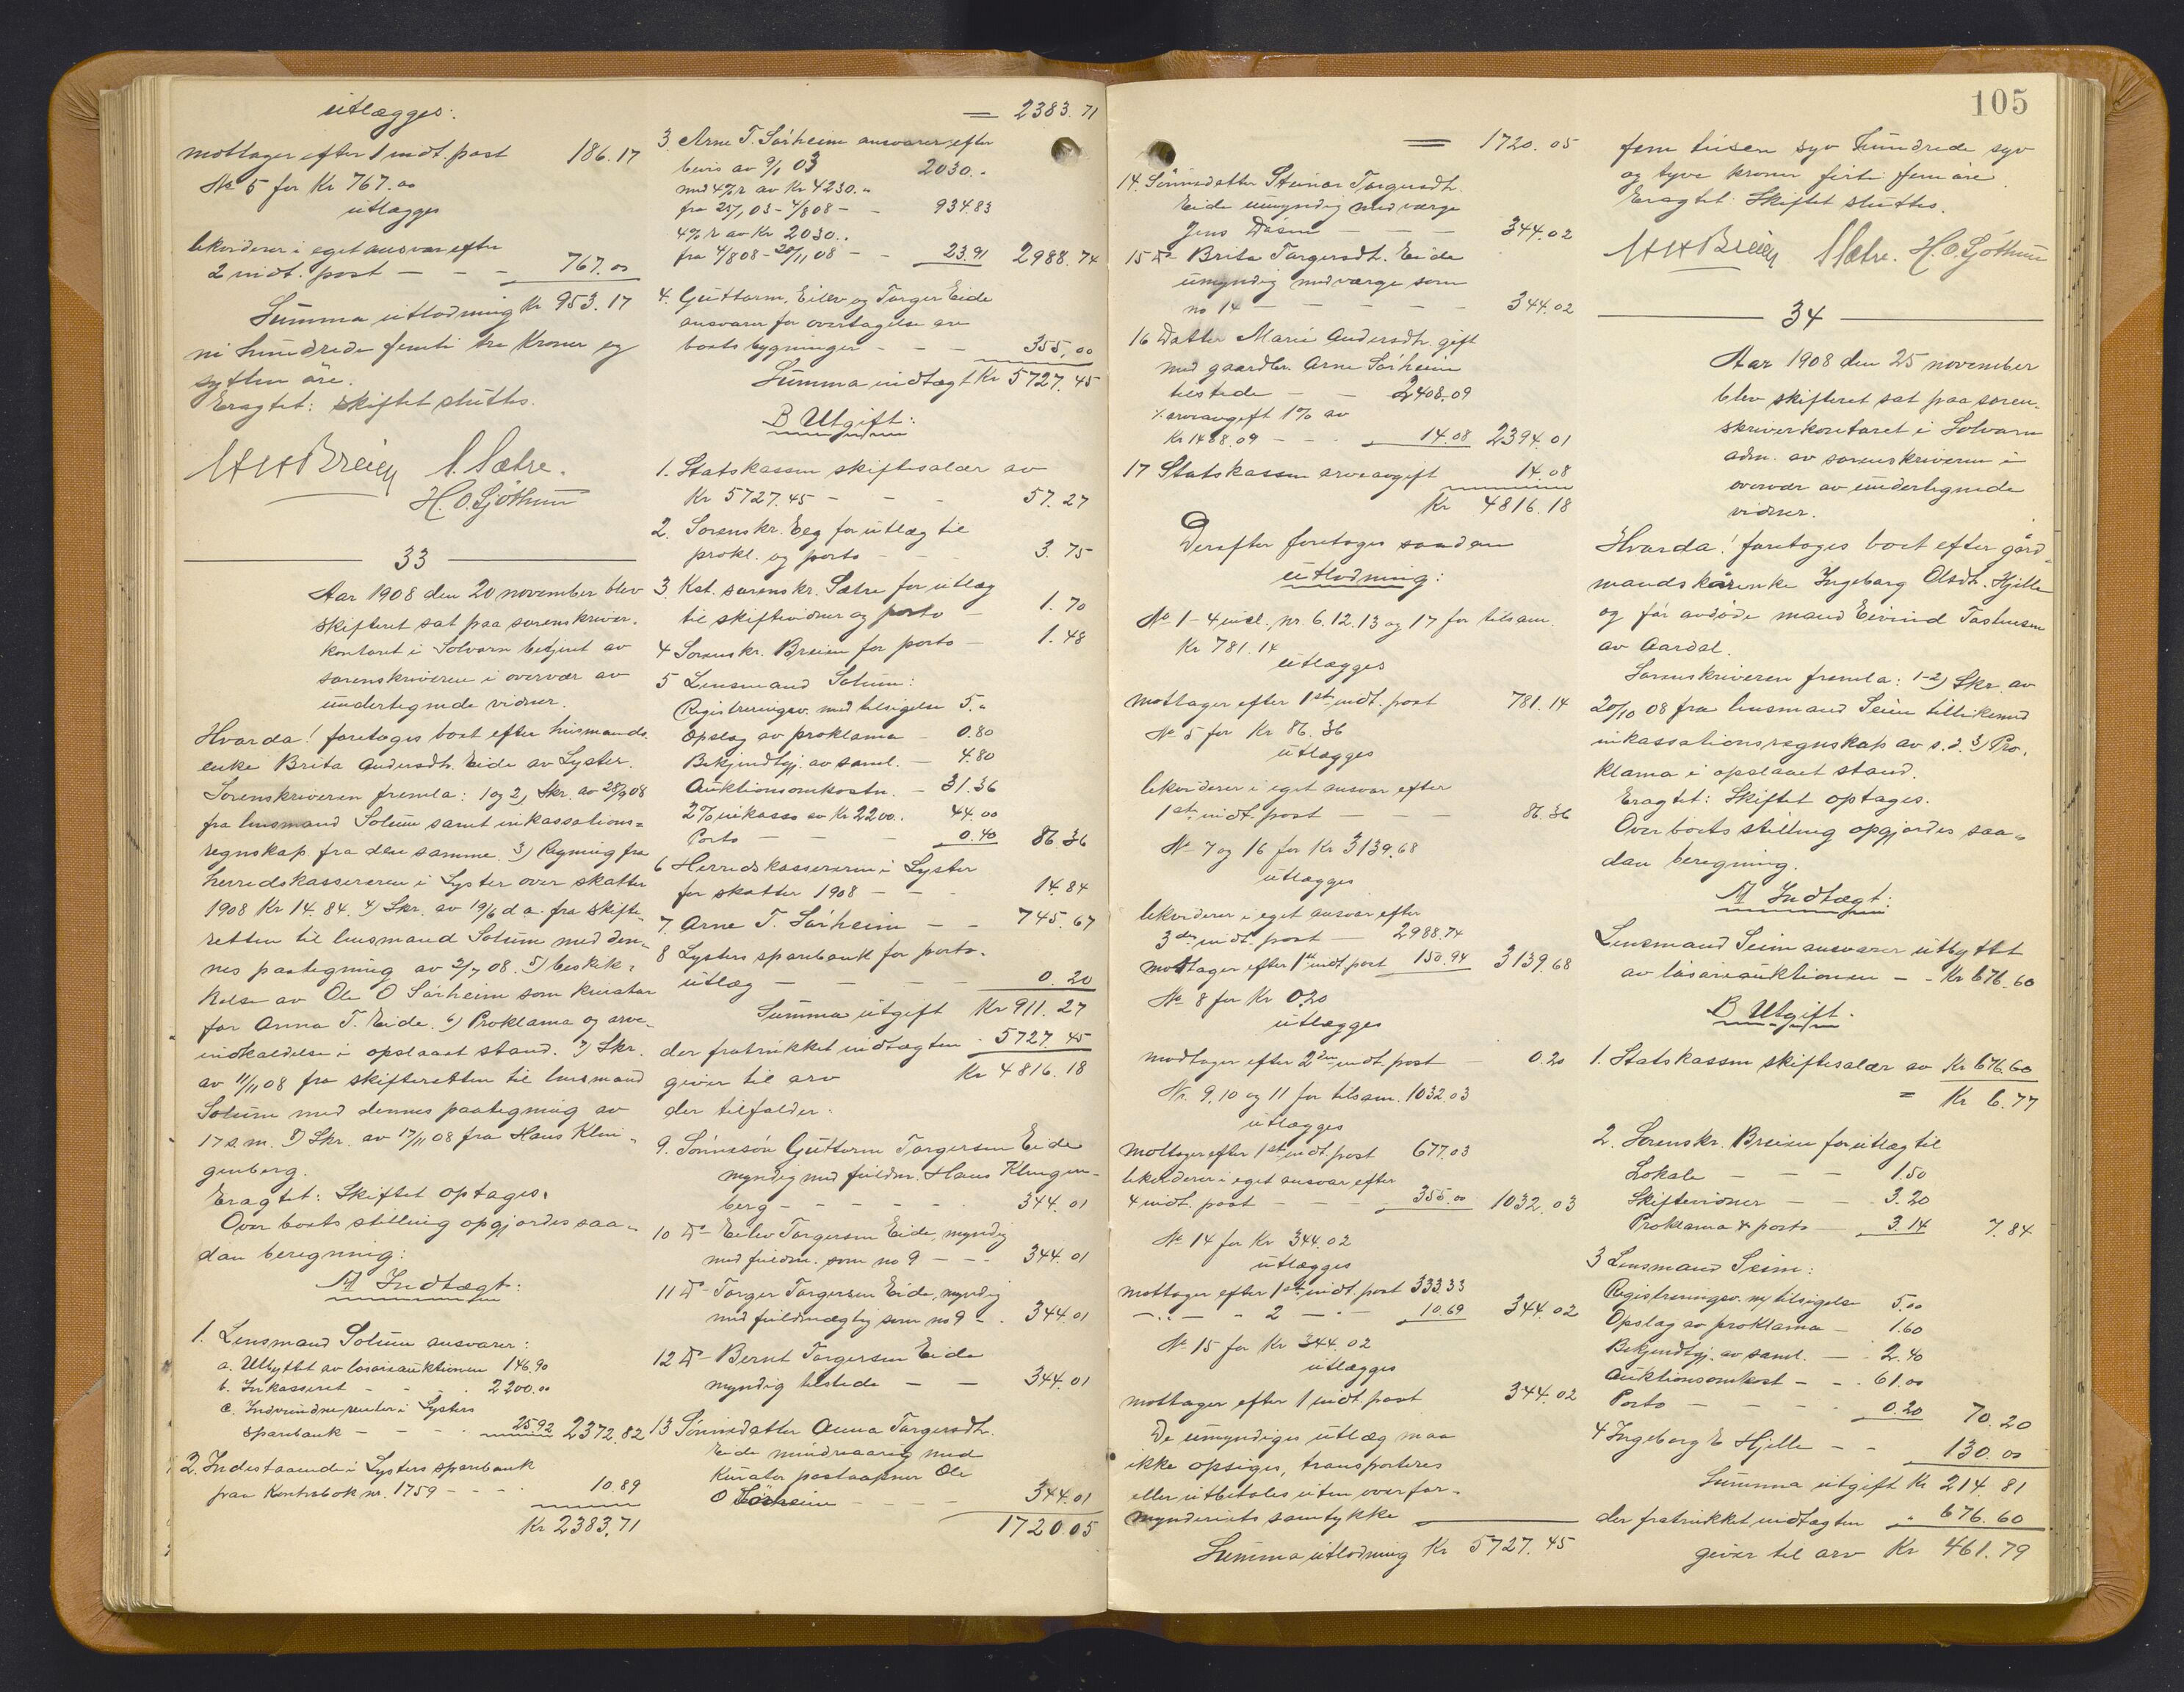 utlægges:
mottager efter 1 indt. post 186.17
No 5 for Kr 767.00
utlægges
likviderer i eget ansvar efter
2 indt. post — — — 767.00
Summa utlodning Kr 953.17
ni hundrede femti tre Kroner og
sytten øre.
Eragtet: skiftet sluttes.
H H Breien S. Sætre.
H. O. Gjøthun
33
Aar 1908 den 20 november blev
skifteret sat paa sorenskriver-
kontoret i Solvorn betjent av
sorenskriveren i overvær av
undertegnede vidner.
Hvorda! foretoges boet efter husmands-
enke Brita Andersdtr. Eide av Lyster.
Sorenskriveren fremla: 1 og 2, Skr. av 28/9 08
fra lensmand Solum samt inkassations=
regnskap fra den samme. 3) Regning fra
herredskassereren i Lyster over skatter
1908 Kr 14.84. 4) Skr. av 19/6 d.a. fra skifte-
retten til lensmand Solum med den-
nes paategning av 2/7 08. 5) beskik-
kelse av Ole O Sørheim som kurator
for Anna T. Eide. 6) Proklama og arve-
indkaldelse i opslaaet stand. 7) Skr.
av 11/11 08 fra skifteretten til lensmand
Solum med dennes paategning av
17 s.m. 8) Skr. av 17/11 08 fra Hans Klin-
genberg.
Eragtet: Skiftet optages.
Over boets stilling opgjordes saa-
dan beregning:
A Indtægt:
1. Lensmand Solum ansvarer:
a. Utbyttet av løsøreauktionen 146.90
b. Inkasseret - - - 2200.00
c. Indvundne renter i Lysters
sparebank — - - - 25.92 2372.82
2. Indestaaende i Lysters sparebank
paa Kontrabok nr. 1759 - - - 10.89
Kr 2383.71
= 2383.71
3. Arne T. Sørheim ansvarer efter
bevis av 9/1 03 2030.-
med 4% r av Kr 4230.-
fra 25/1 03 - 4/8 08 - - 934.83
4% r av Kr 2030.-
fra 4/8 08 - 20/11 08 - - 23.91 2988.74
4. Guttorm, Eilev og Torger Eide
ansvarer for overtagelse av
boets bygninger - - - 355,00
Summa indtægt Kr 5727.45
B Utgift:
1. Statskassen skiftesalær av
Kr 5727.45 - - - 57.27
2. Sorenskr. Eeg for utlæg til
prokl. og porto - - - 3.75
3. Kst. sorenskr. Sætre for utlæg
til skiftevidner og porto - 1.70
4 Sorenskr. Breien for porto - 1.48
5 Lensmand Solum:
Registreringsv. med tilsigelse 5.-
Opslag av proklama - 0.80
Bekjendtgj. av saml. - 4.80
Auktionsomkostn. - 31.36
2% inkasso av Kr 2200.- 44.00
Porto - - - 0.40 86.36
6 Herredskassereren i Lyster
for skatter 1908 - - - 14.84
7. Arne T. Sørheim - - 745.67
8 Lysters sparebank for porto-
utlæg - - - - 0.20
Summa utgift Kr 911.27
der fratrukket indtægten - 5727.45
giver til arv Kr 4816.18
der tilfalder:
9. Sønnesøn Guttorm Torgersen Eide
myndig med fuldm. Hans Klingen-
berg - - - - - 344.01
10 Do Eilev Torgersen Eide, myndig
med fuldm. som no 9 - - - 344.01
11 Do Torger Torgersen Eide, myndig
med fuldmægtig som no 9 - . 344.01
12 Do Bernt Torgersen Eide
myndig tilstede — — 344.01
13 Sønnedatter Anna Torgersdtr.
Eide mindreaarig med
Kurator postaapner Ole
O Sørheim - - - - 344.01
1720.05
= 1720.05
14. Sønnedatter Steinar Torgersdtr.
Eide umyndig med værge
Jens - - - 344.02
15 Do Brita Torgersdtr. Eide
umyndig med værge som
no 14 - - - - - 344.02
16 Datter Marie Andersdtr. gift
med gaardbr. Arne Sørheim
tilstede - - 2408.09
% arveavgift 1% av
Kr 1488.09 - - - 14.08 2394.01
17 Statskassen arveavgift 14.08
Kr 4816.18
Derefter foretoges saadan
utlodning:
No 1-4 incl., nr. 6.12.13 og 17 for tilsam.
Kr 781.14
utlægges
mottager efter 1st indt. post 781.14
No 5 for Kr 86.36
utlægges
likviderer i eget ansvar efter
1st indt. post — — — 86.36
No 7 og 16 for Kr 3139.68
utlægges
likviderer i eget ansvar efter
3die indt. post — 2988.74
mottager efter 1st indt. post 150.94 3139.68
No 8 for Kr 0.20
utlægges
modtager efter 2den indt. post - 0.20
Nr. 9, 10 og 11 for tilsam. 1032.03
utlægges
mottager efter 1st indt. post 677.03
likviderer i eget ansvar efter
4 indt. post - - - 355.00 1032.03
No 14 for Kr 344.02
utlægges
mottager efter 1st indt. post 333.33
-.- - - 2 -.- 10.69 344.02
No 15 for Kr 344.02
utlægges
mottager efter 1 indt. post 344.02
De umyndiges utlæg maa
ikke opsiges, transporteres
eller utbetales uten overfor-
mynderiets samtykke
Summa utlodning Kr 5727.45
105
fem tusen syv hundrede syv
og tyve kroner firti fem øre.
Eragtet: Skiftet sluttes.
H H Breien S. Sætre. H. O. Gjøthun
34
Aar 1908 den 25 november
blev skifteret sat paa soren-
skriverkontoret i Solvorn
adm. av sorenskriveren i
overvær av undertegnede
vidner.
Hvorda! foretoges boet efter gård-
mandskårenke Ingeborg Olsdtr. Hjelle
og før avdøde mand Eivind
av Aardal.
Sorenskriveren fremla: 1-2) Skr. av
20/10 08 fra lensmand Seim tillikemed
inkassationsregnskap av s.d. 3) Pro-
klama i opslaaet stand.
Eragtet: Skiftet optages.
Over boets stilling opgjordes saa-
dan beregning.
A Indtægt:
Lensmand Seim ansvarer utbyttet
av løsøreauktionen - - Kr 676.60
B Utgift.
1. Statskassen skiftesalær av Kr 676.60
= Kr 6.77
2. Sorenskr. Breien for utlæg til
Lokale - - - 1.50
Skiftevidner - - 3.20
Proklama & porto - 3.14 7.84
3 Lensmand Seim:
Registreringsv. m/ tilsigelse 5.00
Opslag av proklama - 1.60
Bekjendtgj. av saml. - - 2.40
Auktionsomkost - - . 61.00
Porto - - - - 0.20 70.20
4 Ingeborg E Hjelle - - 130.00
Summa utgift Kr 214.81
der fratrukket indtægten - 676.60
giver til arv Kr 461.79